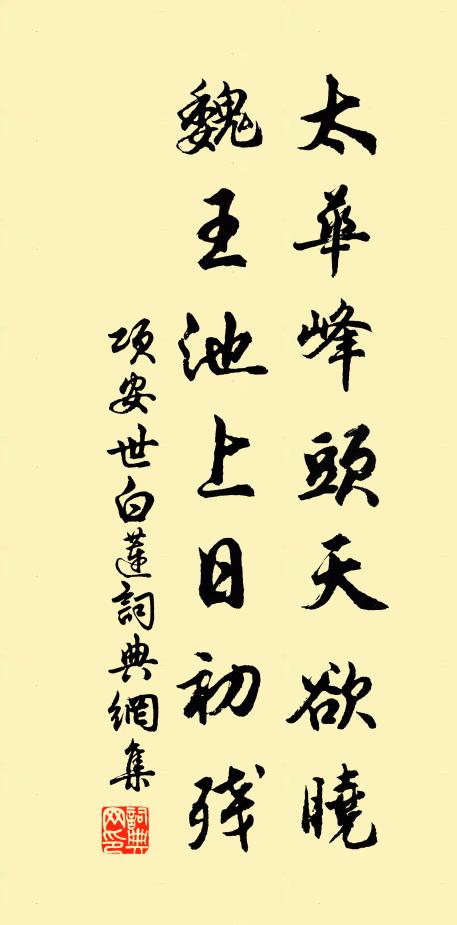 太華峰頭天欲曉
魏王池上日初残
项安世白蓮詞典網集
詞典网印